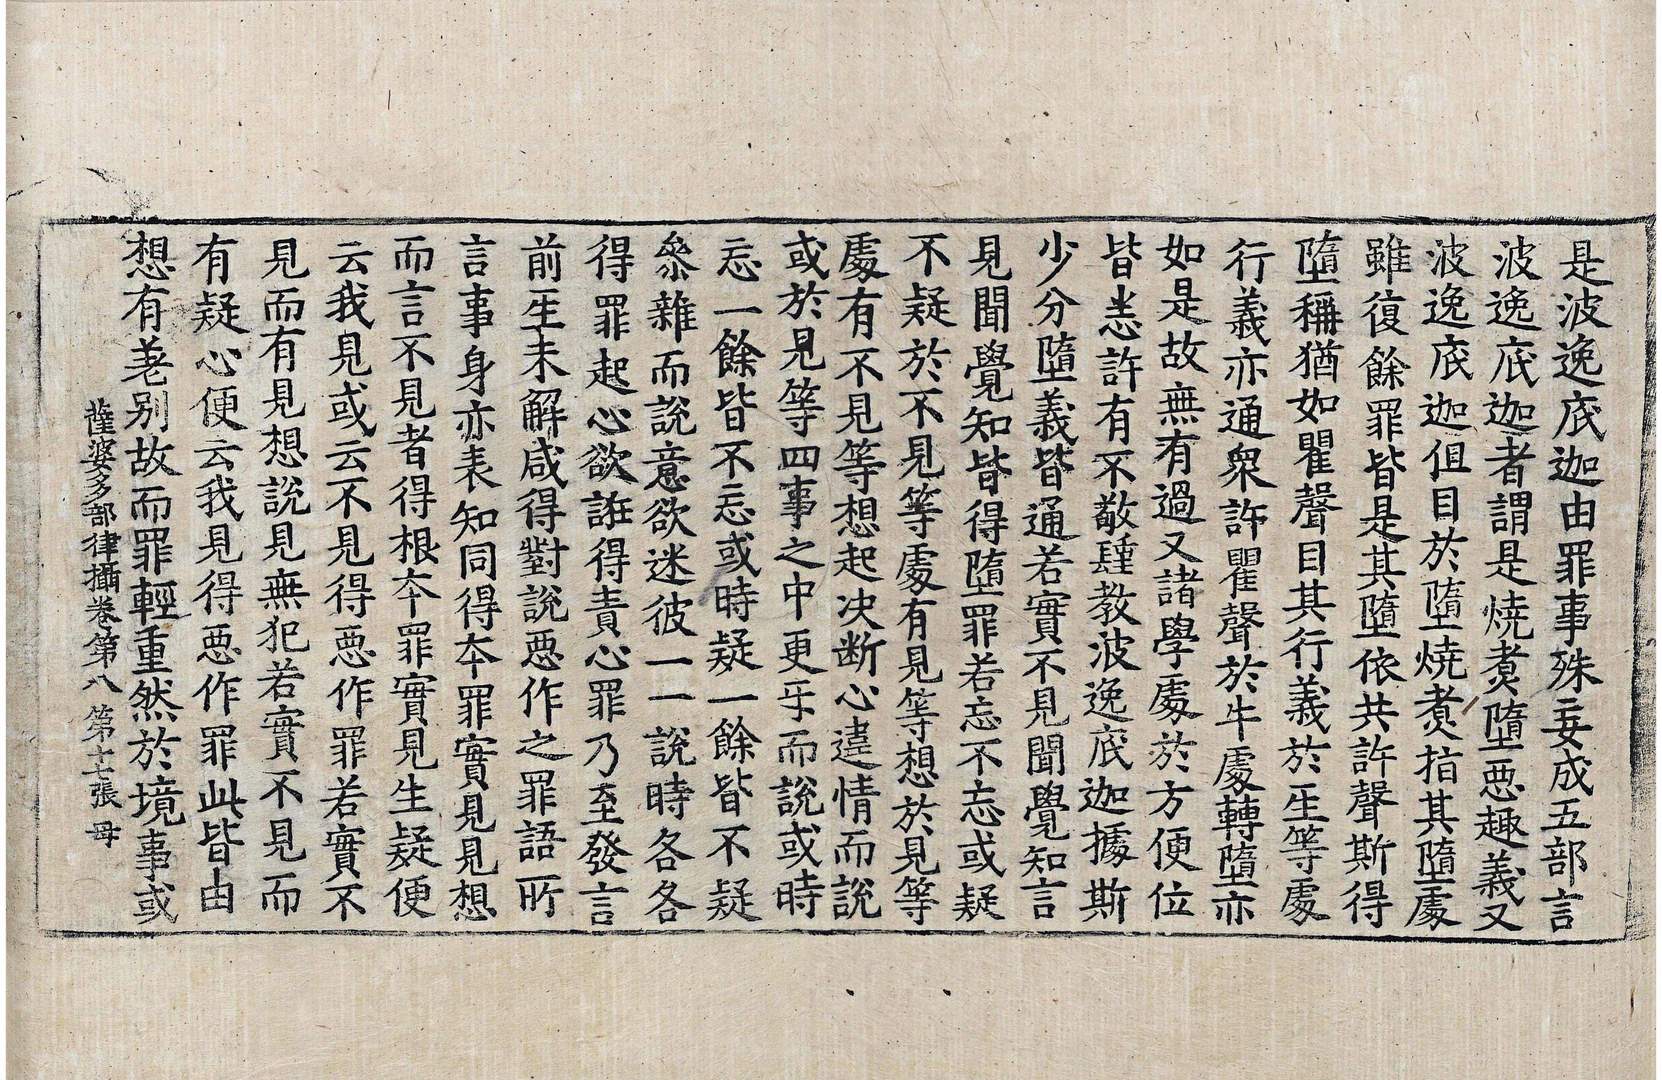 是波逸底迦由罪事殊妄成五部言
波逸底迦者謂是燒煑墮惡趣義又
波逸底迦但目於墮燒煑指其墮處
雖復餘罪皆是其墮依共許聲斯得
墮稱猶如瞿聲目其行義於生等處
行義亦通衆許瞿聲於牛處轉墮亦
如是故無有過又諸學處於方便位
皆悉許有不敬𨽻教波逸底迦據斯
少分墮義皆通若實不見聞覺知言
見聞覺知皆得墮罪若忘不忘或疑
不疑於不見等處有見等想於見等
處有不見等想起決斷心違情而說
或於見等四事之中更乎而說或時
忘一餘皆不忘或時疑一餘皆不疑
叅雜而說意欲迷彼一一說時各各
得罪起心欲誑得責心罪乃至發言
前生未解咸得對說惡作之罪語所
言事身亦表知同得夲罪實見見想
而言不見者得根夲罪實見生疑便
云我見或云不見得惡作罪若實不
見而有見想說見無犯若實不見而
有疑心便云我見得惡作罪此皆由
想有差別故而罪輕重然於境事或
薩婆多部律攝卷第八　第十七張　毋